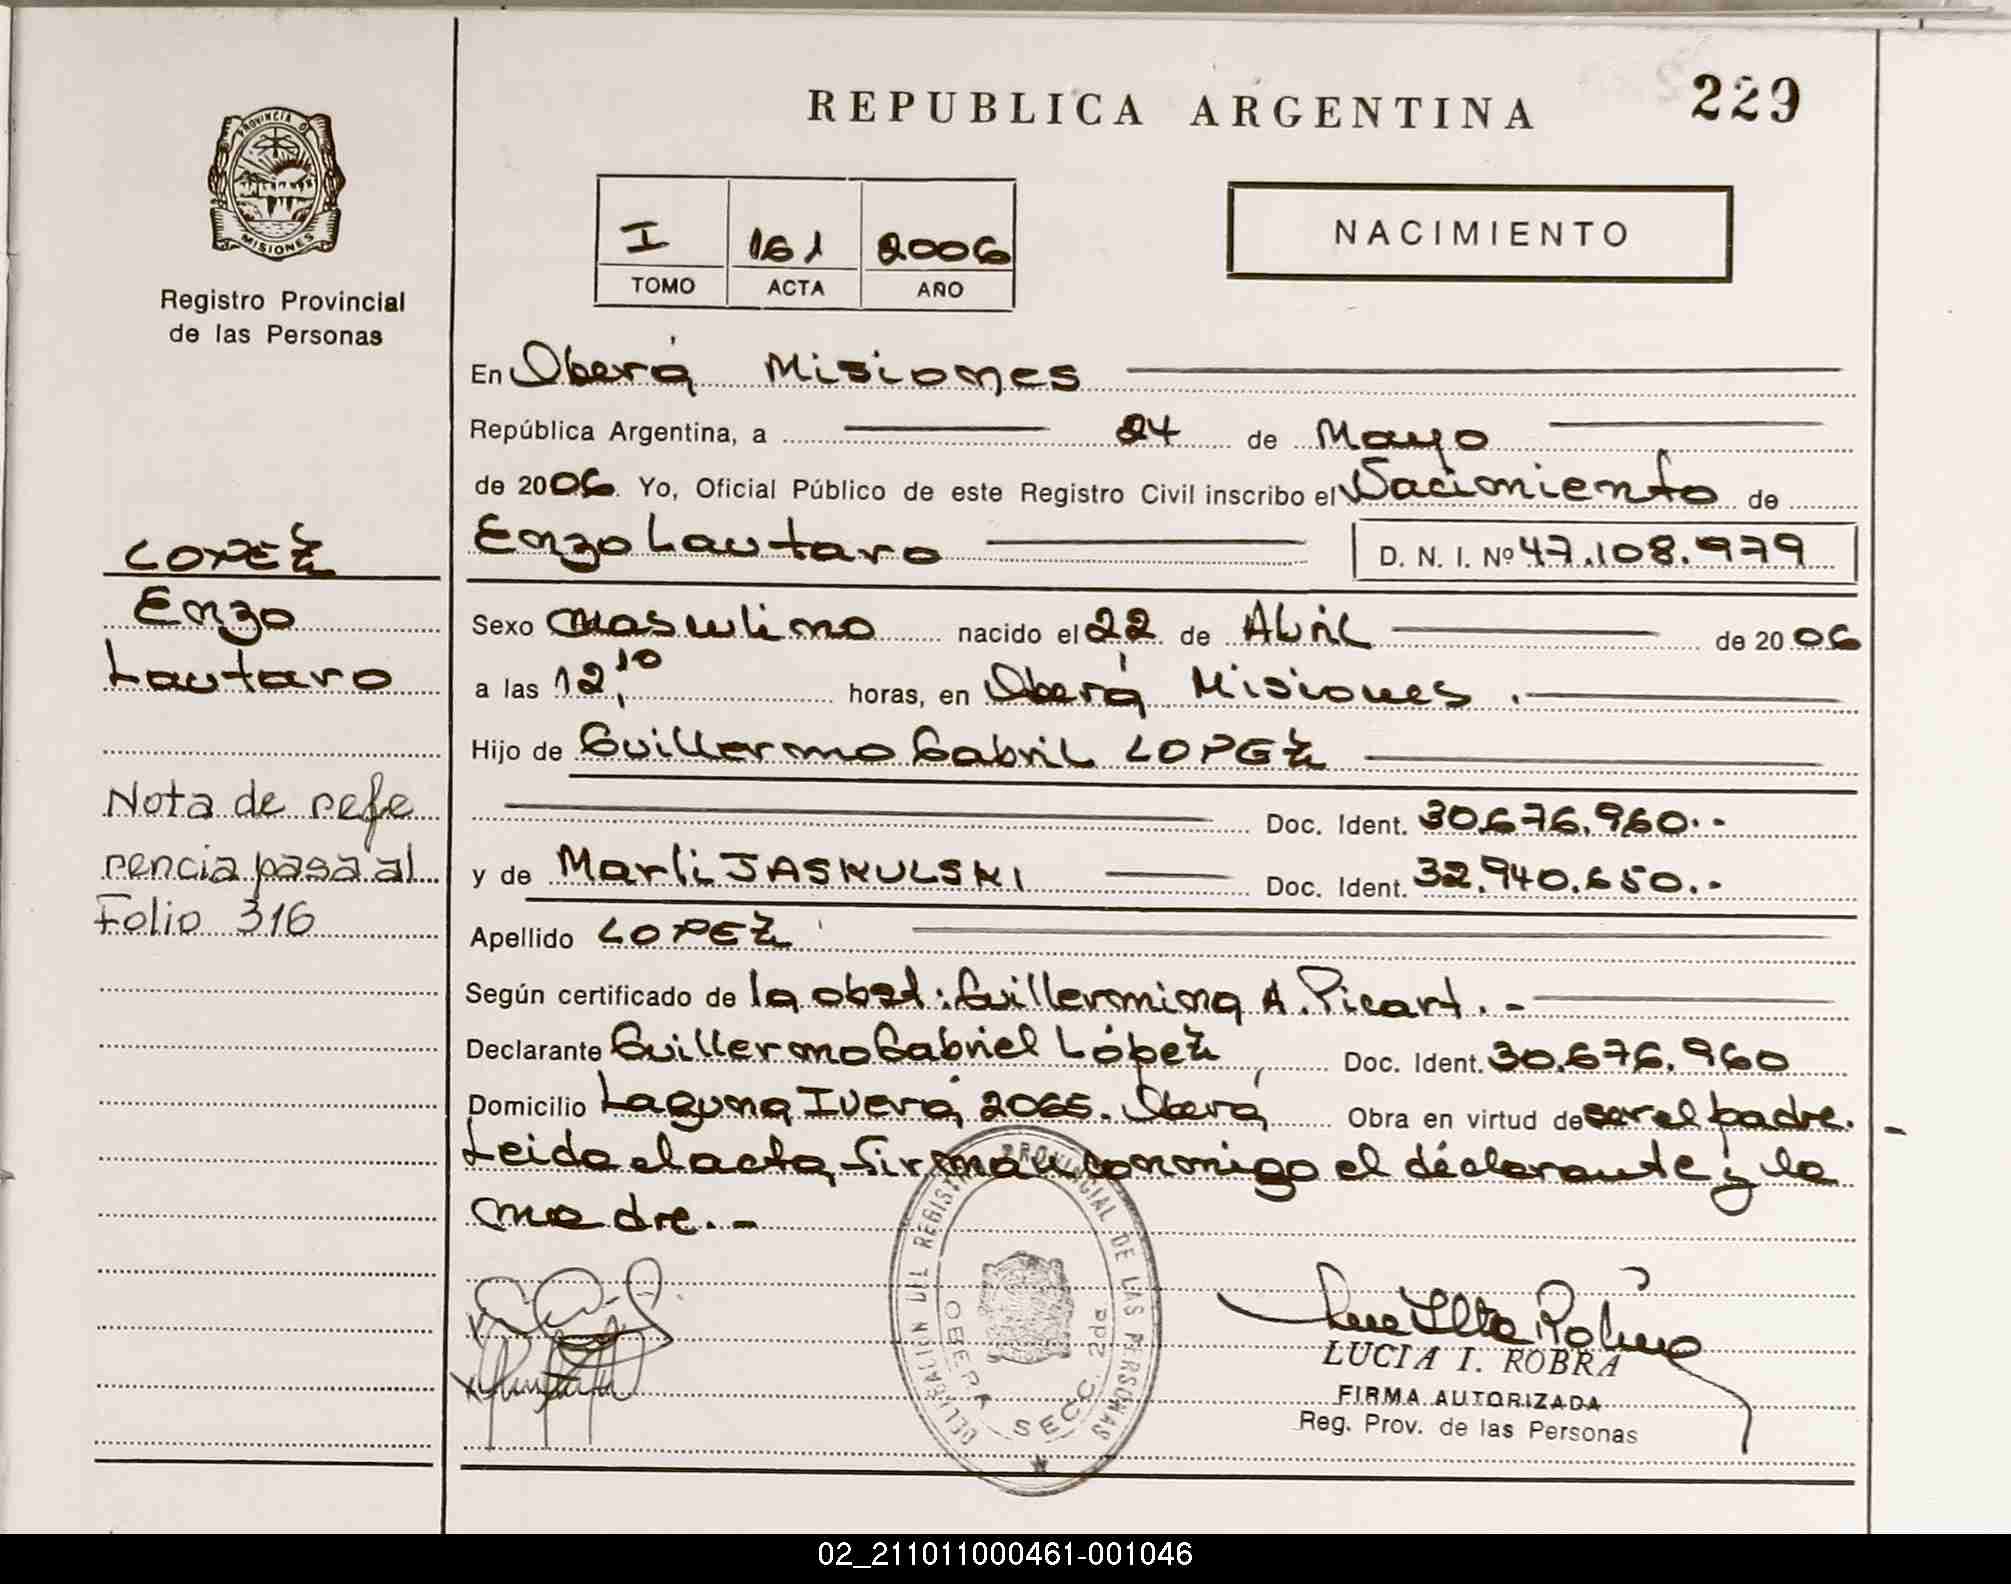 REPUBLICA ARGENTINA
229
PROVINCIA D
MISIONES
Registro Provincial
de las Personas
I 161 2006
TOMO ACTA AÑO
NACIMIENTO
En Oberá Misiones
República Argentina, a 24 de Mayo
de 2006. Yo, Oficial Público de este Registro Civil inscribo el Nacimiento de
Enzo Lautaro D. N. I. Nº 47.108.979
Sexo Masculino nacido el 22 de Abril de 2006
a las 12,10 horas, en Oberá Misiones.
Hijo de Guillermo Gabril LOPEZ
Doc. Ident. 30.676.960.-
y de Marli JASKULSKI Doc. Ident. 32.940.650.-
Apellido LOPEZ
Según certificado de la obst: Guillermina A. Picart.-
Declarante Guillermo Gabriel López Doc. Ident. 30.676.960
Domicilio Laguna Iverá 2065. Oberá Obra en virtud de ser el padre.-
Leida el acta, firman conmigo el declarante y la
madre.-
LOPEZ
Enzo
Lautaro
Nota de refe
rencia pasa al
Folio 316
DELEGACIÓN DEL REGISTRO PROVINCIAL DE LAS PERSONAS
OBERA SECC. 2da
LUCIA I. ROBRA
FIRMA AUTORIZADA
Reg. Prov. de las Personas
02_211011000461-001046